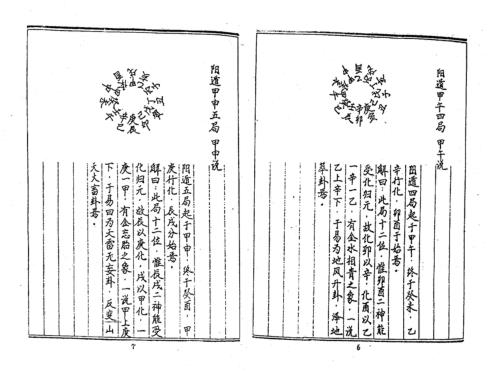 阳道甲午四局 甲午说
阳道四局起于甲午，终于癸未，乙
辛行化，卯酉于始焉。
解曰：此局十二位，惟卯酉二神能
受化归元，故化卯以辛，化酉以乙
一辛一乙，有金水相胥之象，一说
乙上辛下，于易为地风升卦，泽地
萃卦焉。
6
阳道甲申五局 甲申说
阳道五局起于甲申，终于癸酉，甲
庚行化，辰戌分始焉。
解曰：此局十二位，惟辰戌二神能受
化归元，故辰以庚化，戌以甲化，一
庚一甲，有金忌胎之象，一说甲上庚
下，于易曰为天雷无妄卦，反变山
天大畜卦焉。
7